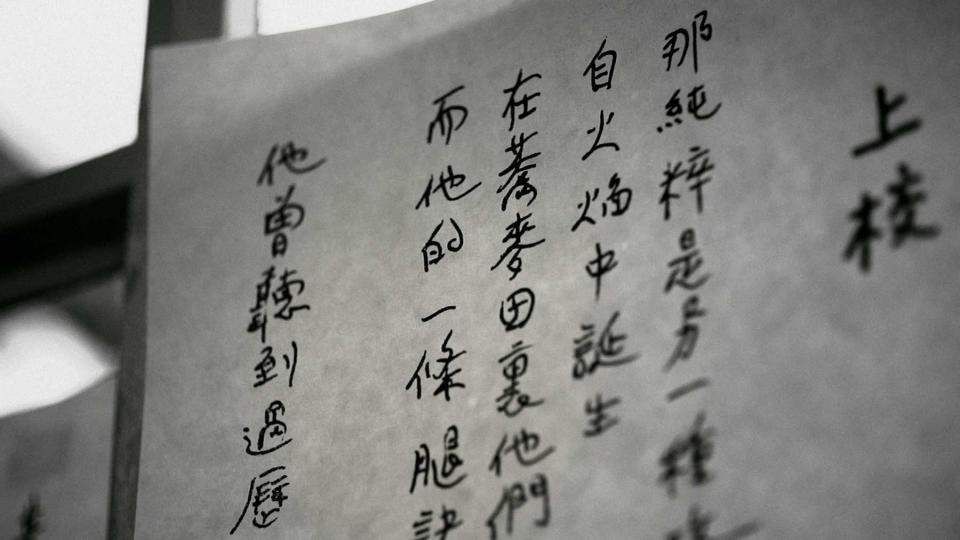 上校
那純粹是另一種
自火焰中誕生
在蕎麥田裏他們
而他的一條腿訣
他曾聽到過歷